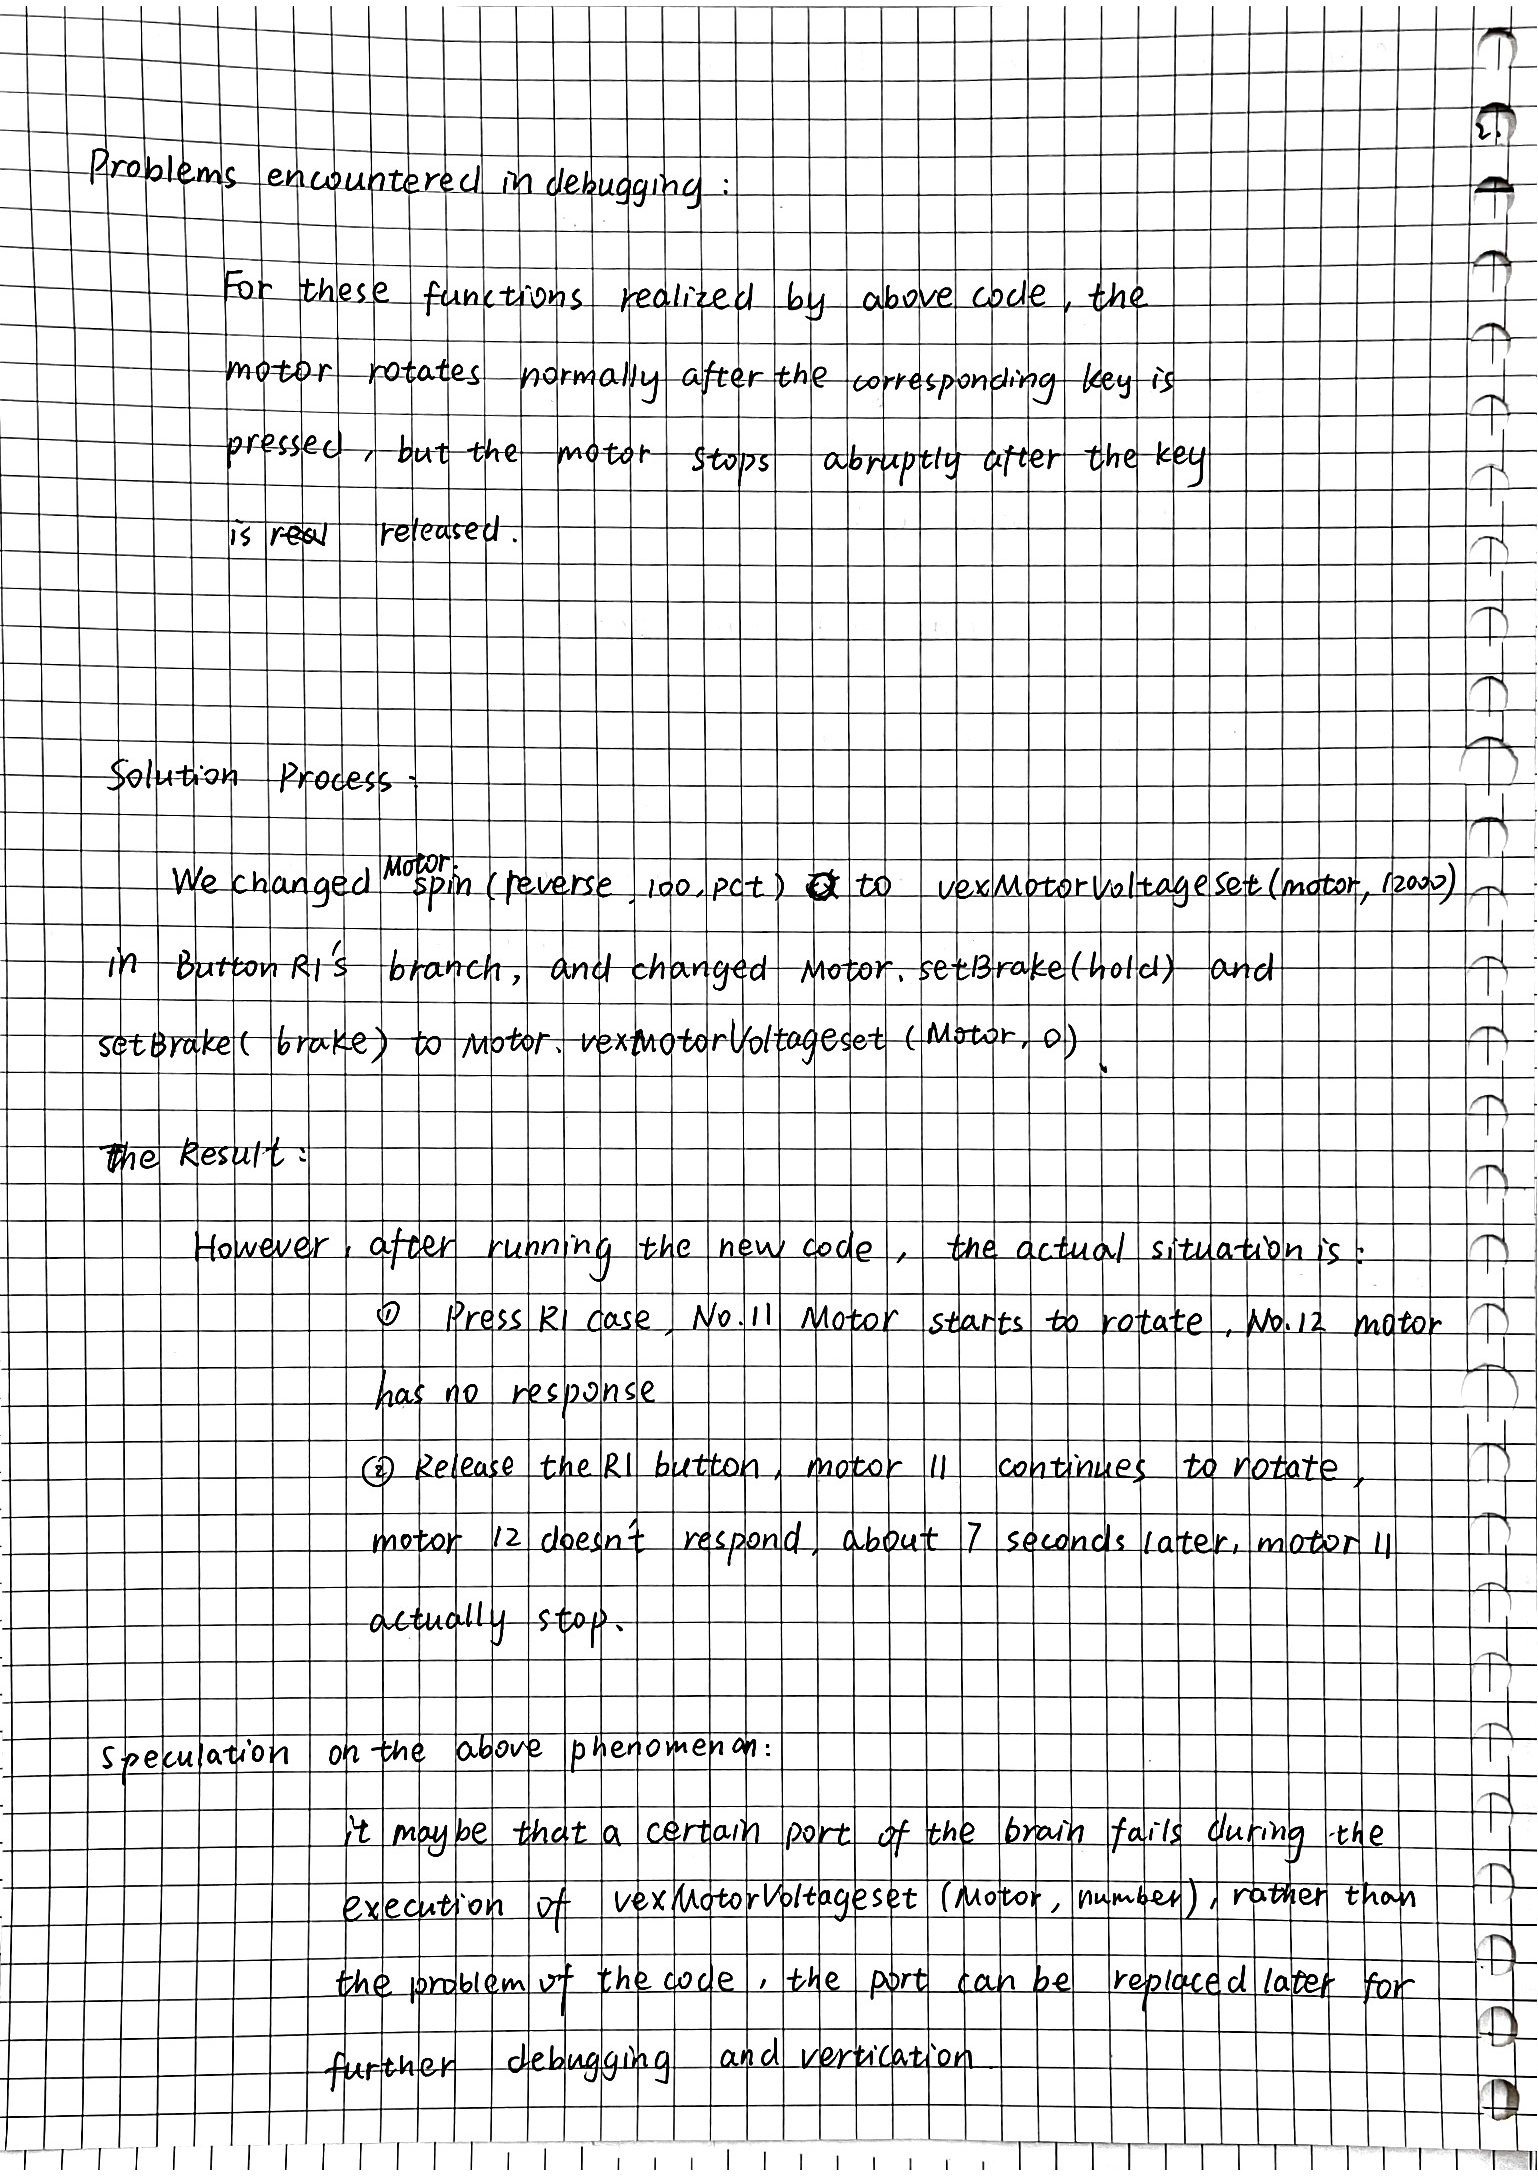 2.
Problems encountered in debugging:
For these functions realized by above code, the
motor rotates normally after the corresponding key is
pressed, but the motor stops abruptly after the key
is released.
Solution Process:
We changed Motor.spin (reverse, 100, pct) to vexMotorVoltageset (motor, 12000)
in Button R1's branch, and changed Motor. setBrake(hold) and
setBrake( brake) to Motor. vexMotorVoltageset (Motor, 0).
The Result:
However, after running the new code, the actual situation is:
① Press R1 case, No.11 Motor starts to rotate, No.12 motor
has no response
② Release the R1 button, motor 11 continues to rotate,
motor 12 doesn't respond, about 7 seconds later, motor 11
actually stop.
Speculation on the above phenomenon:
it maybe that a certain port of the brain fails during the
execution of vexMotorVoltageset (Motor, number), rather than
the problem of the code, the port can be replaced later for
further debugging and vertication